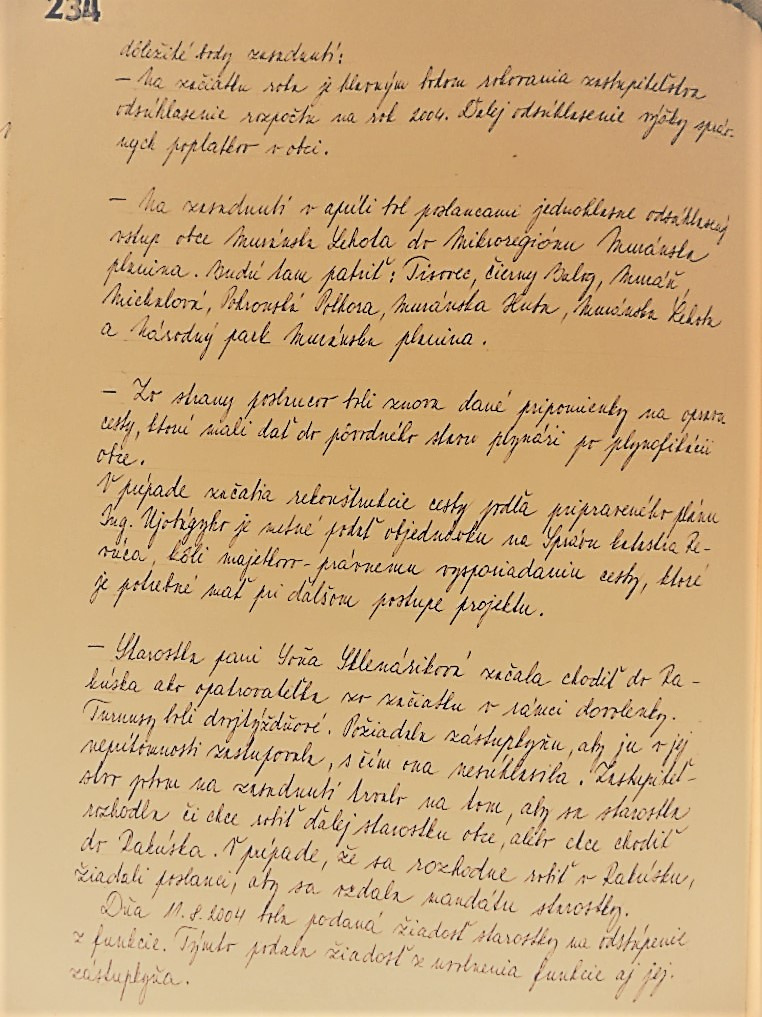 234
dôležité body zasadnutí:
– Na začiatku roka je hlavným bodom rokovania zastupiteľstva
odsúhlasenie rozpočtu na rok 2004. Ďalej odsúhlasenie výšky správ-
nych poplatkov v obci.
– Na zasadnutí v apríli bol poslancami jednohlasne odsúhlasený
vstup obce Muránska Lehota do Mikroregiónu Muránska
planina. Budú tam patriť: Tisovec, Čierny Balog, Muráň,
Michalová, Pohronská Polhora, Muránska Huta, Muránska Lehota
a Národný park Muránska planina.
– Zo strany poslancov boli znova dané pripomienky na opravu
cesty, ktorú mali dať do pôvodného stavu plynári po plynofikácii
obce.
V prípade začatia rekonštrukcie cesty podľa pripraveného plánu
Ing. je nutné podať objednávku na Správu katastra Re-
vúca, kôli majetkovo-právnemu vysporiadaniu cesty, ktoré
je potrebné mať pri ďalšom postupe projektu.
– Starostka pani Soňa Sklenáriková začala chodiť do Ra-
kúska ako opatrovateľka zo začiatku v rámci dovolenky.
Turnusy boli dvojtýždňové. Požiadala zástupkyňu, aby ju v jej
neprítomnosti zastupovala, s čím ona nesúhlasila. Zastupiteľ-
stvo potom na zasadnutí trvalo na tom, aby sa starostka
rozhodla či chce robiť ďalej starostku obce, alebo chce chodiť
do Rakúska. V prípade, že sa rozhodne robiť v Rakúsku,
žiadali poslanci, aby sa vzdala mandátu starostky.
Dňa 11.8.2004 bola podaná žiadosť starostky na odstúpenie
z funkcie. Týmto podala žiadosť z uvolnenia funkcie aj jej
zástupkyňa.